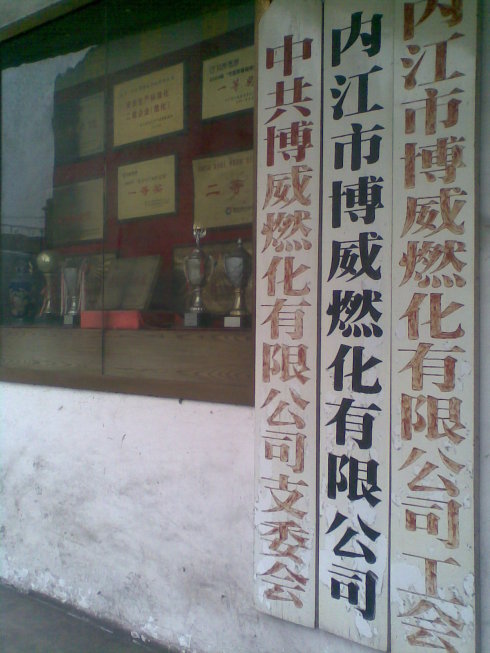 内江市博威燃化有限公司工会
内江市博威燃化有限公司
中共博威燃化有限公司支委会
一等奖
一等奖
二等